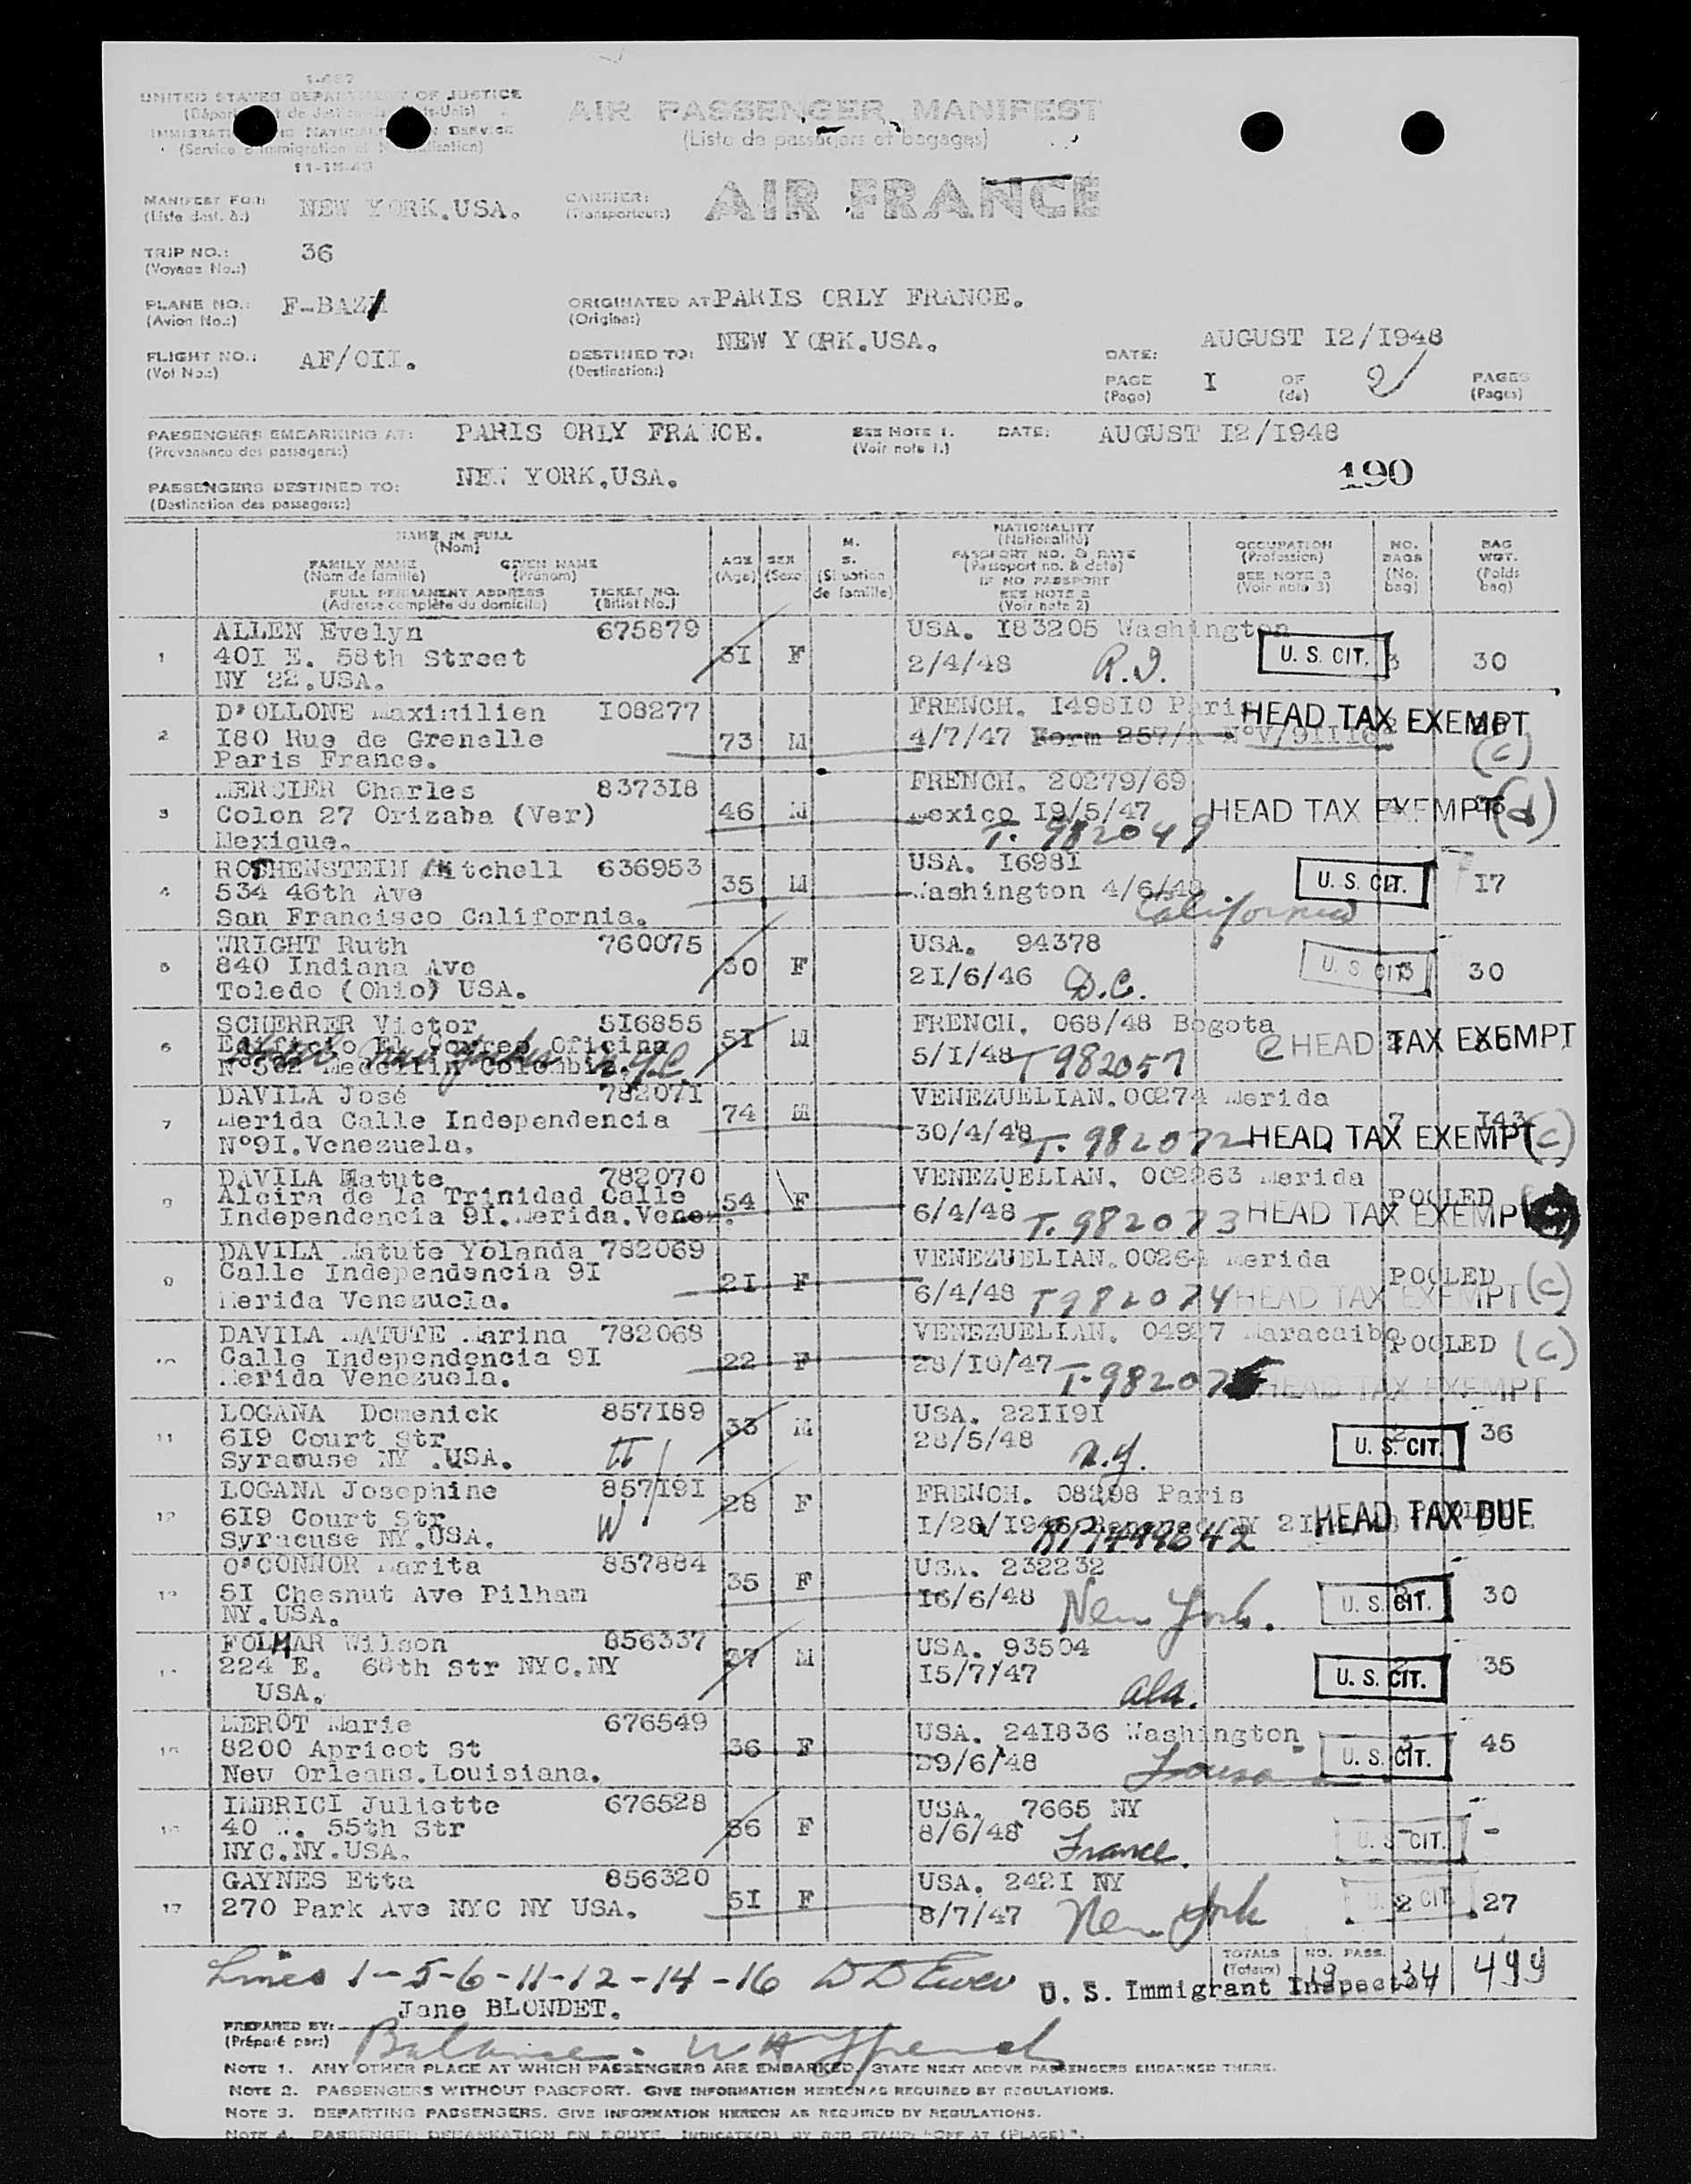 I-487
UNITED STATES DEPARTMENT OF JUSTICE
IMMIGRATION AND NATURALIZATION SERVICE
(Service d'Immigration et Naturalisation)
11-15-45
AIR PASSENGER MANIFEST
(Liste de passagers et bagages)
MANIFEST FOR: NEW YORK.USA. CARRIER: AIR FRANCE
(Liste dest. à:) (Transporteur:)
TRIP NO.: 36
(Voyage No.:)
PLANE NO.: F-BAZ
(Avion No.:)
ORIGINATED AT PARIS ORLY FRANCE.
(Origine:)
FLIGHT NO.: AF/OII.
(Vol No.:)
DESTINED TO: NEW YORK.USA.
(Destination:)
DATE: AUGUST I2/I948
PAGE I OF 2 PAGES
(Page) (de) (Pages)
PASSENGERS EMBARKING AT: PARIS ORLY FRANCE. SEE NOTE 1. DATE: AUGUST I2/I948
(Provenance des passagers:) (Voir note 1.)
190
PASSENGERS DESTINED TO: NEW YORK,USA.
(Destination des passagers:)
NAME IN FULL
(Nom)
FAMILY NAME GIVEN NAME
(Nom de famille) (Prénom)
FULL PERMANENT ADDRESS TICKET NO.
(Adresse complète du domicile) (Billet No.)
AGE
(Age)
SEX
(Sexe)
M.
S.
(Situation
de famille)
NATIONALITY
(Nationalité)
PASSPORT NO. & DATE
(Passeport no. & date)
IF NO PASSPORT
SEE NOTE 2
(Voir note 2)
OCCUPATION
(Profession)
SEE NOTE 3
(Voir note 3)
NO.
BAGS
(No.
bag)
BAG
WGT.
(Poids
bag)
1 ALLEN Evelyn 675879 3I F USA. I83205 Washington
40I E. 58th Street 2/4/48 R.I. U. S. CIT. 3 30
NY 22.USA.
2 D'OLLONE Maximilien I08277 73 M FRENCH. I498I0 Paris HEAD TAX EXEMPT
I80 Rue de Grenelle 4/7/47 Form 257/A N°V/9III6 (c)
Paris France.
3 MERCIER Charles 8373I8 46 M FRENCH. 20279/69
Colon 27 Orizaba (Ver) Mexico I9/5/47 HEAD TAX EXEMPT (d)
Mexique. T. 982049
4 ROTHENSTEIN Mitchell 636953 35 M USA. I698I
534 46th Ave Washington 4/6/48 U. S. CIT. I7
San Francisco California. California
5 WRIGHT Ruth 760075 30 F USA. 94378
840 Indiana Ave 21/6/46 D.C. U. S CIT. 3 30
Toledo (Ohio) USA.
6 SCHERRER Victor 5I6855 5I M FRENCH. 068/48 Bogota
Edificio El Correo Oficina 5/I/48 T 982057 C HEAD TAX EXEMPT
N°502 Medellin Colombia.
7 DAVILA José 78207I 74 M VENEZUELIAN.00274 Merida
Merida Calle Independencia 30/4/48 T. 982072 HEAD TAX EXEMPT (c) 7 I43
N°9I.Venezuela.
DAVILA Matute 782070 54 F VENEZUELIAN. 002263 Merida
Alcira de la Trinidad Calle POOLED
Independencia 9I.Merida.Venez. 6/4/48 T. 982073 HEAD TAX EXEMPT
9 DAVILA Matute Yolanda 782069 2I F VENEZUELIAN.00264 Merida
Calle Independencia 9I POOLED
Merida Venezuela. 6/4/48 T982074 HEAD TAX EXEMPT (c)
10 DAVILA MATUTE Marina 782068 22 F VENEZUELIAN. 04987 Maracaibo
Calle Independencia 9I 28/I0/47 POOLED (c)
Merida Venezuela. T-98207 HEAD TAX EXEMPT
11 LOGANA Domenick 857I89 33 M USA. 22II9I
6I9 Court Str 28/5/48 N.Y. U. S. CIT. 2 36
Syracuse NY .USA. H
12 LOGANA Josephine 857I9I 28 F FRENCH. 08298 Paris
6I9 Court Str HEAD TAX DUE
Syracuse NY.USA. W
O'CONNOR Marita 857884 35 F USA. 232232
5I Chesnut Ave Pilham I6/6/48 New York. U. S. CIT. 30
NY.USA.
FOLMAR Wilson 856337 37 M USA. 93504
224 E. 68th Str NYC.NY I5/7/47 Ala. U. S. CIT. 35
USA.
MEROT Marie 676549 36 F USA. 24I836 Washington
8200 Apricot St 29/6/48 U. S. CIT. 3 45
New Orleans.Louisiana.
IMBRICI Juliette 676528 36 F USA. 7665 NY
40 W. 55th Str 8/6/48 France. U. S CIT. -
NYC.NY.USA.
17 GAYNES Etta 856320 5I F USA. 242I NY
270 Park Ave NYC NY USA. 8/7/47 New York U. S CIT. 2 27
Lines 1-5-6-11-12-14-16
U. S. Immigrant Inspector
TOTALS NO. PASS. 34 499
(Totaux)
Jane BLONDET.
PREPARED BY:
(Préparé par:)
Balance.
NOTE 1. ANY OTHER PLACE AT WHICH PASSENGERS ARE EMBARKED. STATE NEXT ABOVE PASSENGERS EMBARKED THERE.
NOTE 2. PASSENGERS WITHOUT PASSPORT. GIVE INFORMATION HEREON AS REQUIRED BY REGULATIONS.
NOTE 3. DEPARTING PASSENGERS. GIVE INFORMATION HEREON AS REQUIRED BY REGULATIONS.
NOTE 4. PASSENGER DEBARKATION EN ROUTE. INDICATE(D) BY RED STAMP "OFF AT (PLACE)".